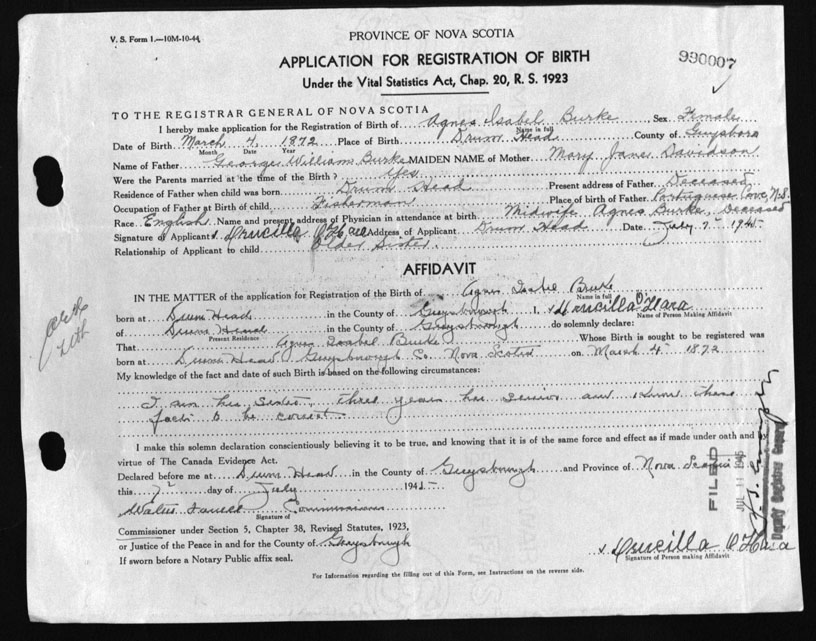 V. S. Form 1.—10M-10-44
PROVINCE OF NOVA SCOTIA
APPLICATION FOR REGISTRATION OF BIRTH
Under the Vital Statistics Act, Chap. 20, R. S. 1923
990007
TO THE REGISTRAR GENERAL OF NOVA SCOTIA
I hereby make application for the Registration of Birth of Agnes Isabel Burke Sex Female
Name in full
Date of Birth March 4, 1872 Place of Birth Drum Head County of Guysboro
Month Date Year
Name of Father George William Burke MAIDEN NAME of Mother Mary Jane Davidson
Were the Parents married at the time of the Birth? Yes
Residence of Father when child was born Drum Head Present address of Father Deceased
Occupation of Father at Birth of child Fisherman Place of birth of Father Portuguese Cove, N.S.
Race English Name and present address of Physician in attendance at birth Midwife Agnes Burke, Deceased
Signature of Applicant x Drucilla O'Hara Address of Applicant Drum Head Date July 7 1945
Relationship of Applicant to child Older Sister
AFFIDAVIT
IN THE MATTER of the application for Registration of the Birth of Agnes Isabel Burke
Name in full
born at Drum Head in the County of Guysborough I, Drucilla O'Hara
Name of Person Making Affidavit
of Drum Head in the County of Guysborough do solemnly declare:
Present Residence
That Agnes Isabel Burke Whose Birth is sought to be registered was
born at Drum Head Guysborough Co. Nova Scotia on March 4 1872
My knowledge of the fact and date of such Birth is based on the following circumstances:
I am her sister, three years her senior and know these
facts to be correct.
I make this solemn declaration conscientiously believing it to be true, and knowing that it is of the same force and effect as if made under oath and by
virtue of The Canada Evidence Act.
Declared before me at Drum Head in the County of Guysborough and Province of Nova Scotia
this 7 day of July 1945
Commissioner
Signature of
Commissioner under Section 5, Chapter 38, Revised Statutes, 1923,
or Justice of the Peace in and for the County of Guysborough
If sworn before a Notary Public affix seal.
x Drucilla O'Hara
Signature of Person making Affidavit
For Information regarding the filling out of this Form, see Instructions on the reverse side.
FILED
JUL 11 1945
Deputy Registrar General